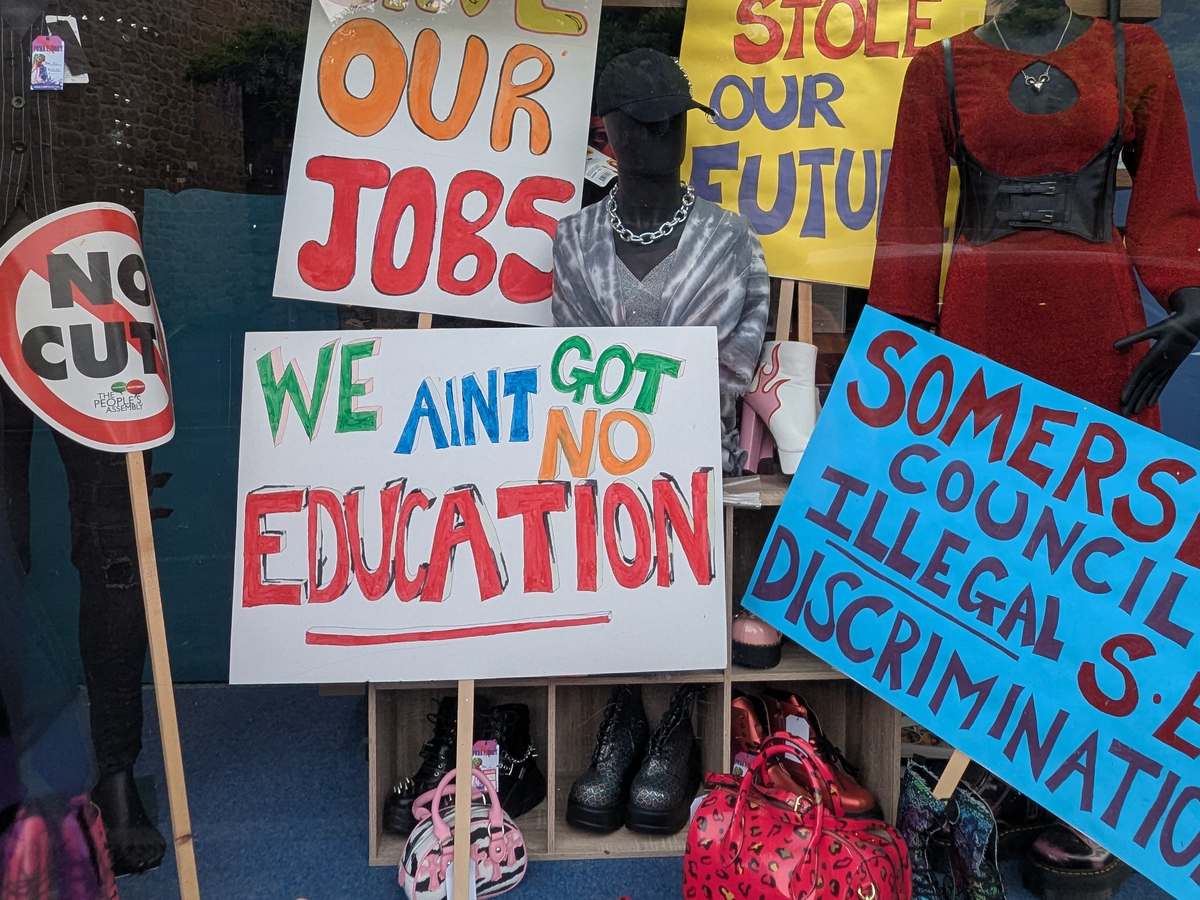 OUR
JOBS
STOLE
OUR
FUTU
NO
CUT
THE
PEOPLE'S
ASSEMBLY
WE AINT GOT
NO
EDUCATION
SOMERS
COUNCIL
ILLEGAL S.E
DISCRIMINATIO